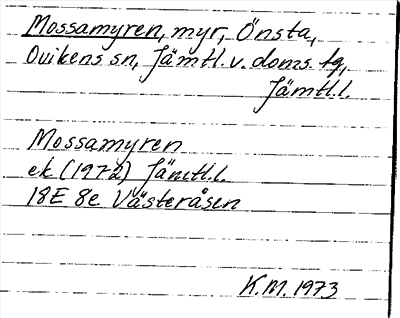 Mossamyren, myr, Önsta,
Ovikens sn, Jämtl. v. doms. tg,
Jämtl. l.
Mossamyren
ek (1972) Jämtl. l.
18E 8e Västeråsen
K.M. 1973